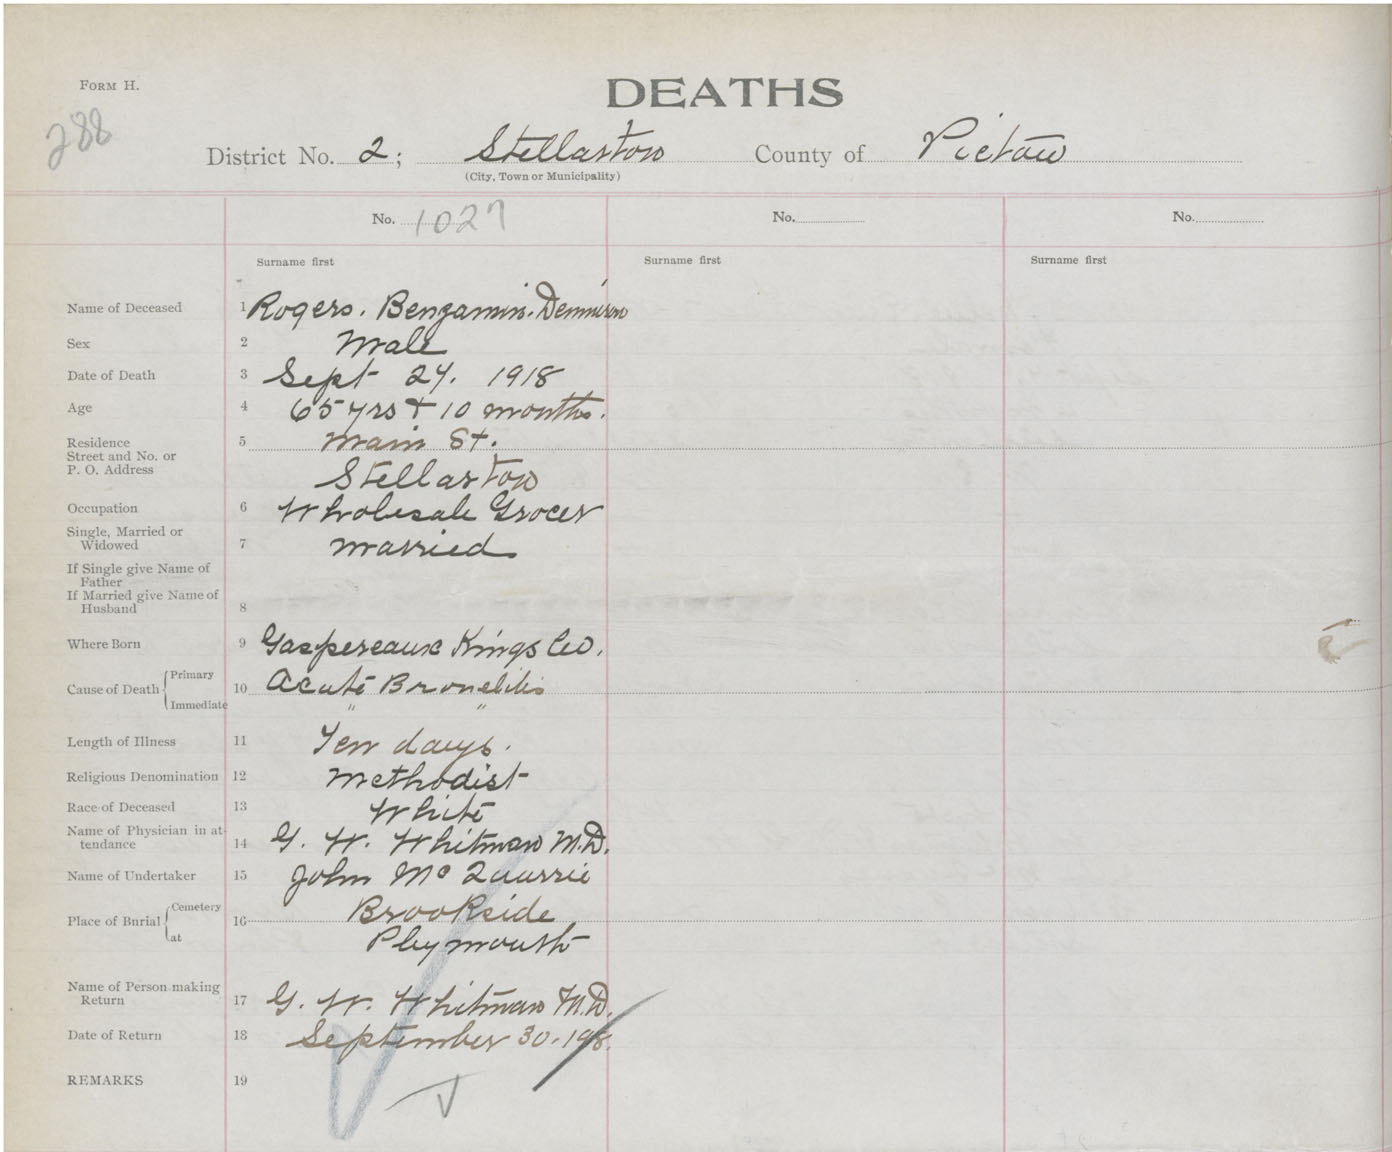 FORM H.
DEATHS
288
District No. 2; Stellarton County of Pictou
(City, Town or Municipality)
No. 1027 No. No.
Surname first Surname first Surname first
Name of Deceased 1 Rogers. Benjamin. Dennison
Sex 2 Male
Date of Death 3 Sept 27. 1918
Age 4 65 yrs + 10 months.
Residence 5 Main St.
Street and No. or
P. O. Address Stellarton
Occupation 6 Wholesale Grocer
Single, Married or
Widowed 7 Married
If Single give Name of
Father
If Married give Name of
Husband 8
Where Born 9 Gaspereaux Kings Co.
Cause of Death Primary 10 Acute Bronchitis
Immediate " "
Length of Illness 11 Ten days.
Religious Denomination 12 Methodist
Race of Deceased 13 White
Name of Physician in at-
tendance 14 G. W. Whitman M.D.
Name of Undertaker 15 John Mc Quarrie
Place of Burial Cemetery 16 Brookside
at Plymouth
Name of Person making
Return 17 G. W. Whitman M.D.
Date of Return 18 September 30. 1918.
REMARKS 19